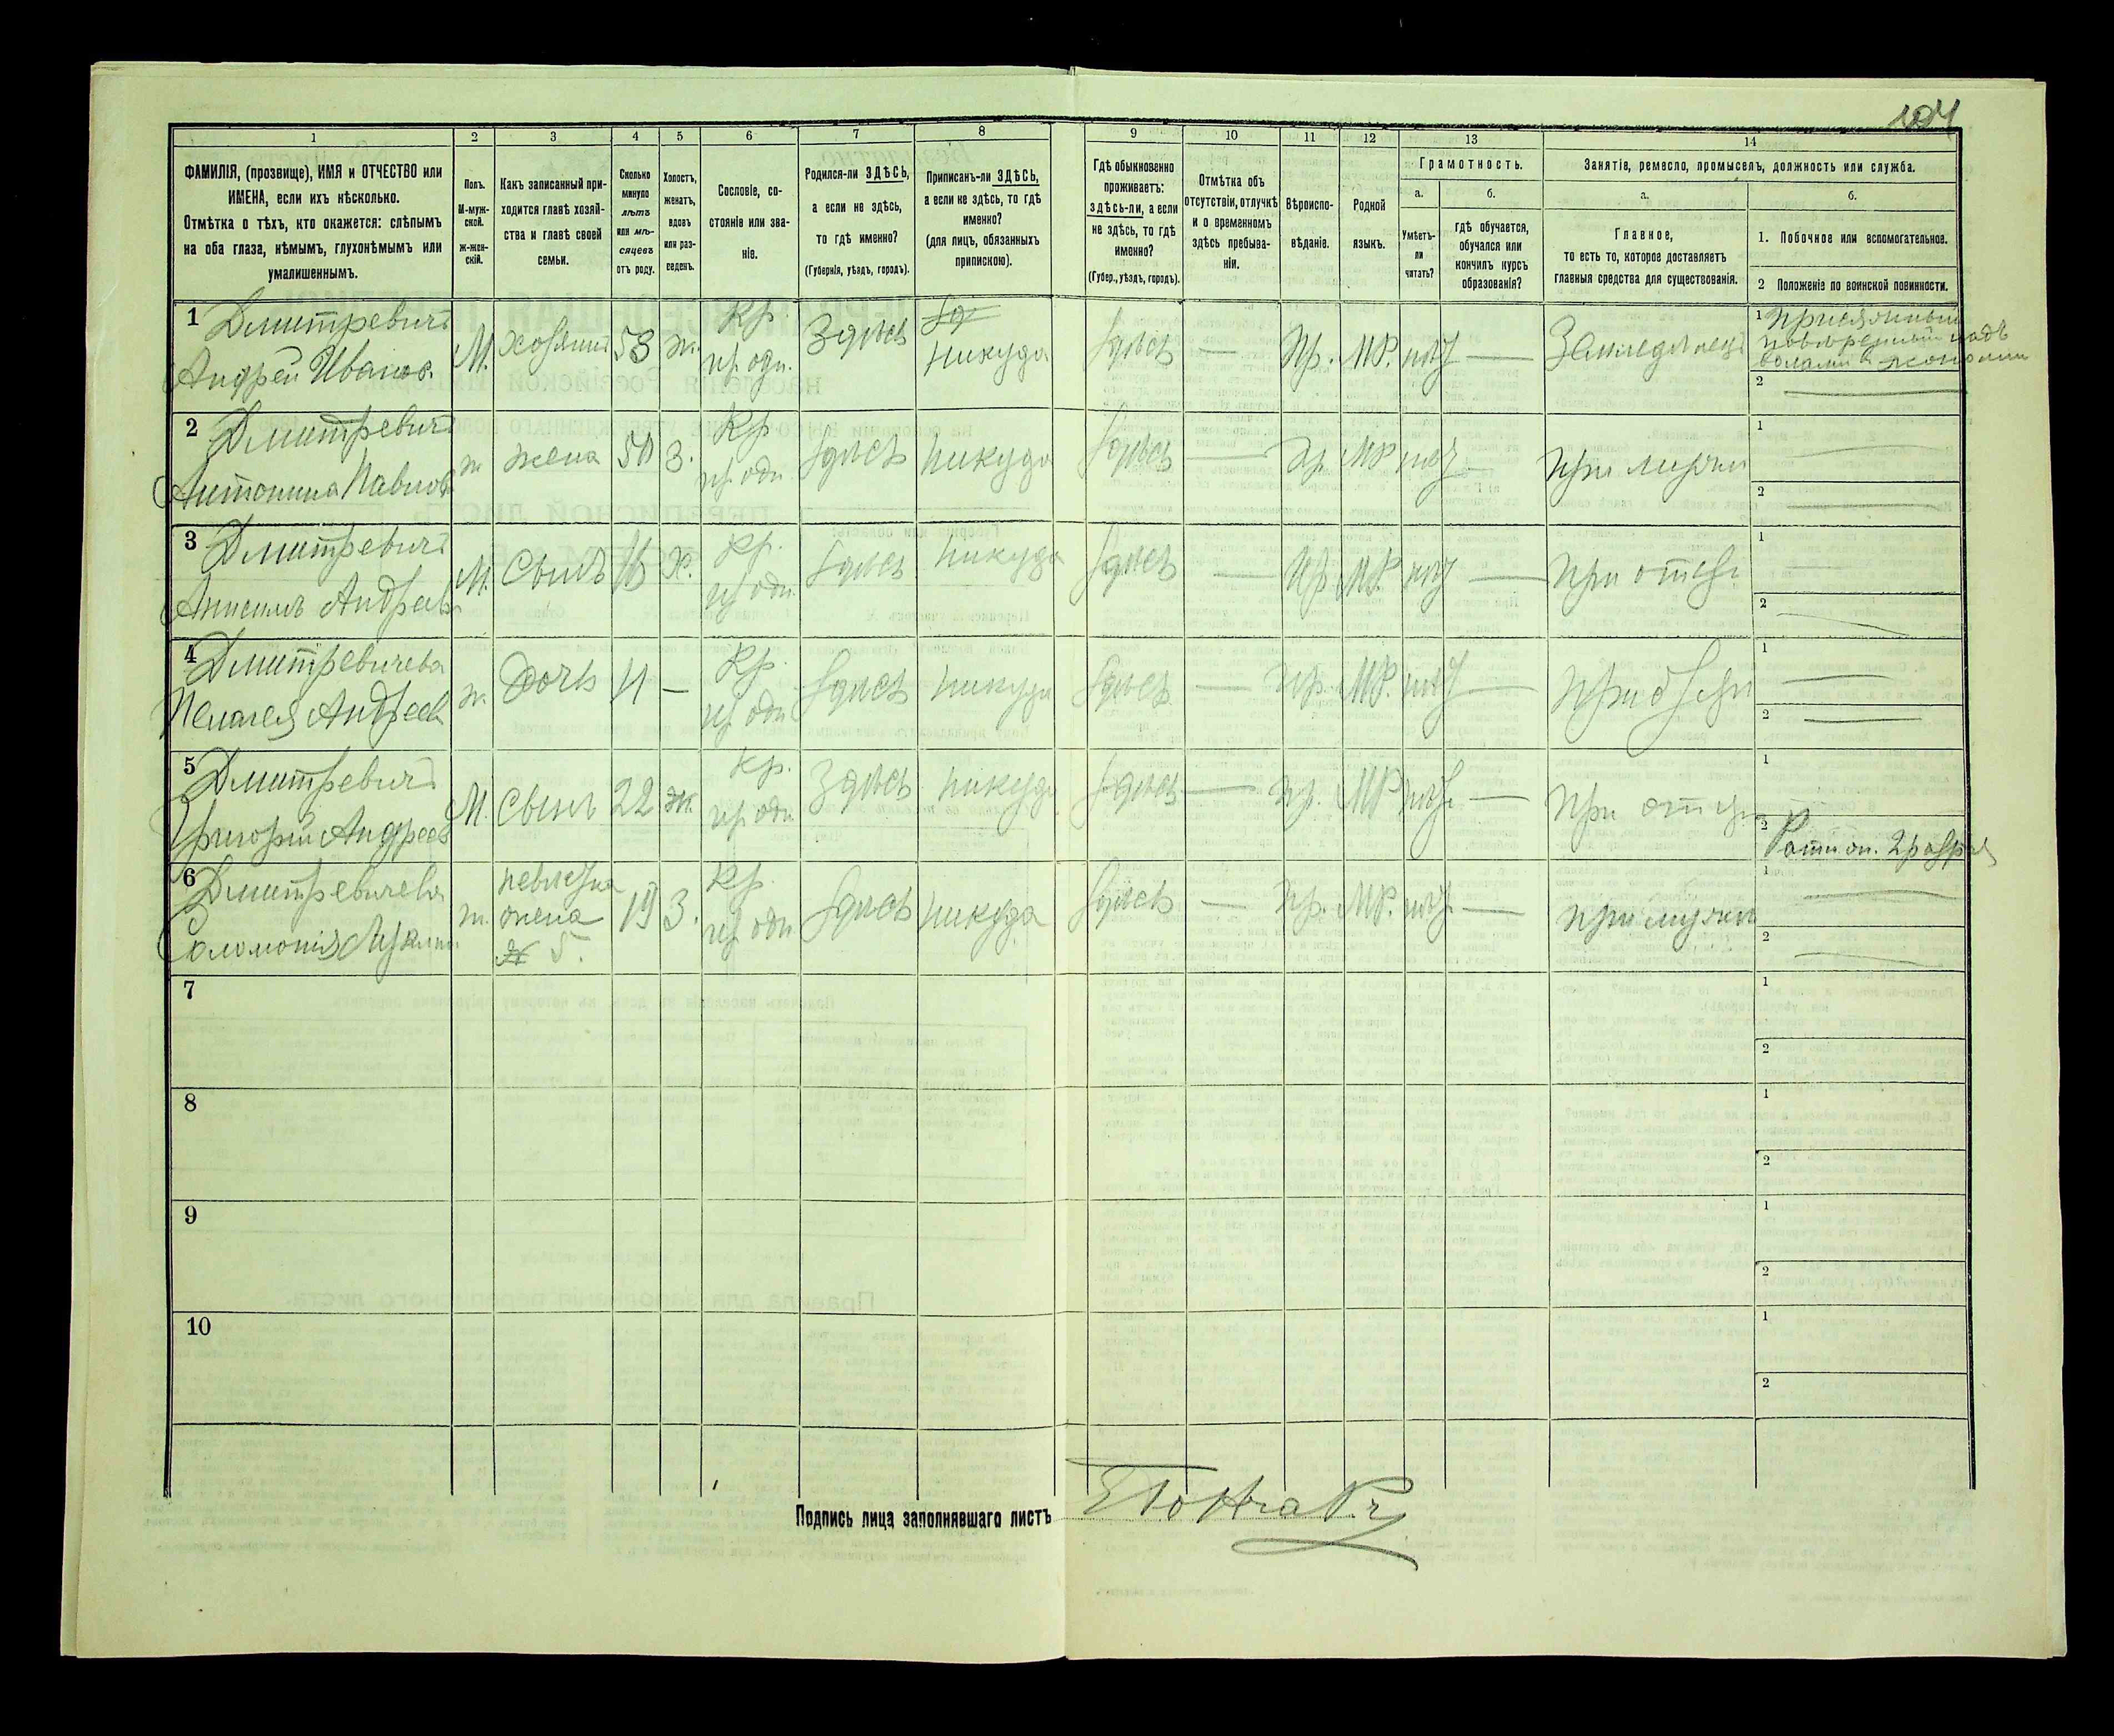 104
1 2 3 4 5 6 7 8 9 10 11 12 13 14
ФАМИЛІЯ, (прозвище), ИМЯ и ОТЧЕСТВО или
ИМЕНА, если ихъ нѣсколько.
Отмѣтка о тѣхъ, кто окажется: слѣпымъ
на оба глаза, нѣмымъ, глухонѣмымъ или
умалишеннымъ.
Полъ.
М-муж-
ской.
ж-жен-
скій.
Какъ записанный при-
ходится главѣ хозяй-
ства и главѣ своей
семьи.
Сколько
минуло
лѣтъ
или мѣ-
сяцевъ
отъ роду.
Холостъ,
женатъ,
вдовъ
или раз-
веденъ.
Сословіе, со-
стояніе или зва-
ніе.
Родился-ли ЗДѢСЬ,
а если не здѣсь,
то гдѣ именно?
(Губернія, уѣздъ, городъ).
Приписанъ-ли ЗДѢСЬ,
а если не здѣсь, то гдѣ
именно?
(для лицъ, обязанныхъ
припискою).
Гдѣ обыкновенно
проживаетъ:
здѣсь-ли, а если
не здѣсь, то гдѣ
именно?
(Губер., уѣздъ, городъ).
Отмѣтка объ
отсутствіи, отлучкѣ
и о временномъ
здѣсь пребыва-
ніи.
Вѣроиспо-
вѣданіе.
Родной
языкъ.
Грамотность.
а.
Умѣетъ-
ли
читать?
б.
гдѣ обучается,
обучался или
кончилъ курсъ
образованія?
Занятіе, ремесло, промыселъ, должность или служба.
а.
Главное,
то есть то, которое доставляетъ
главныя средства для существованія.
б.
1. Побочное или вспомогательное.
2 Положеніе по воинской повинности.
1 Дмитревичъ
Андрей Иванов.
М. хозяинъ 53 ж. Кр. Здѣсь никуда Здѣсь — Пр. МР. нѣт — Земледѣлецъ
1
2 —
2 Дмитревичъ
Антонина Павлов
ж жена 50 з. Кр здѣсь никуда здѣсь — Пр. МР нѣт — При мужи
1 —
2 —
3 Дмитревичъ
Анисимъ Андреев
М. Сынъ 16 Х. Кр. здѣсь никуда здѣсь — Пр МР. нѣт — При отцѣ
1 —
2 —
4 Дмитревичева
Пелагея Андреев
ж. Дочь 11 — Кр. здѣсь никуда здѣсь — Пр. МР. нѣт —
1 —
2 —
5 Дмитревичъ
Григорій Андреев
М. Сынъ 22 ж. Кр. Здѣсь никуда здѣсь — Пр. МР нѣт — При отци
1
2
6 Дмитревичева
Соломонія
ж. невѣстка
жена
5.
19 з. Кр. здѣсь никуда здѣсь — Пр. МР. нѣт — При мужи
1 —
2 —
7
1
2
8
1
2
9
1
2
10
1
2
Подпись лица заполнявшаго листъ